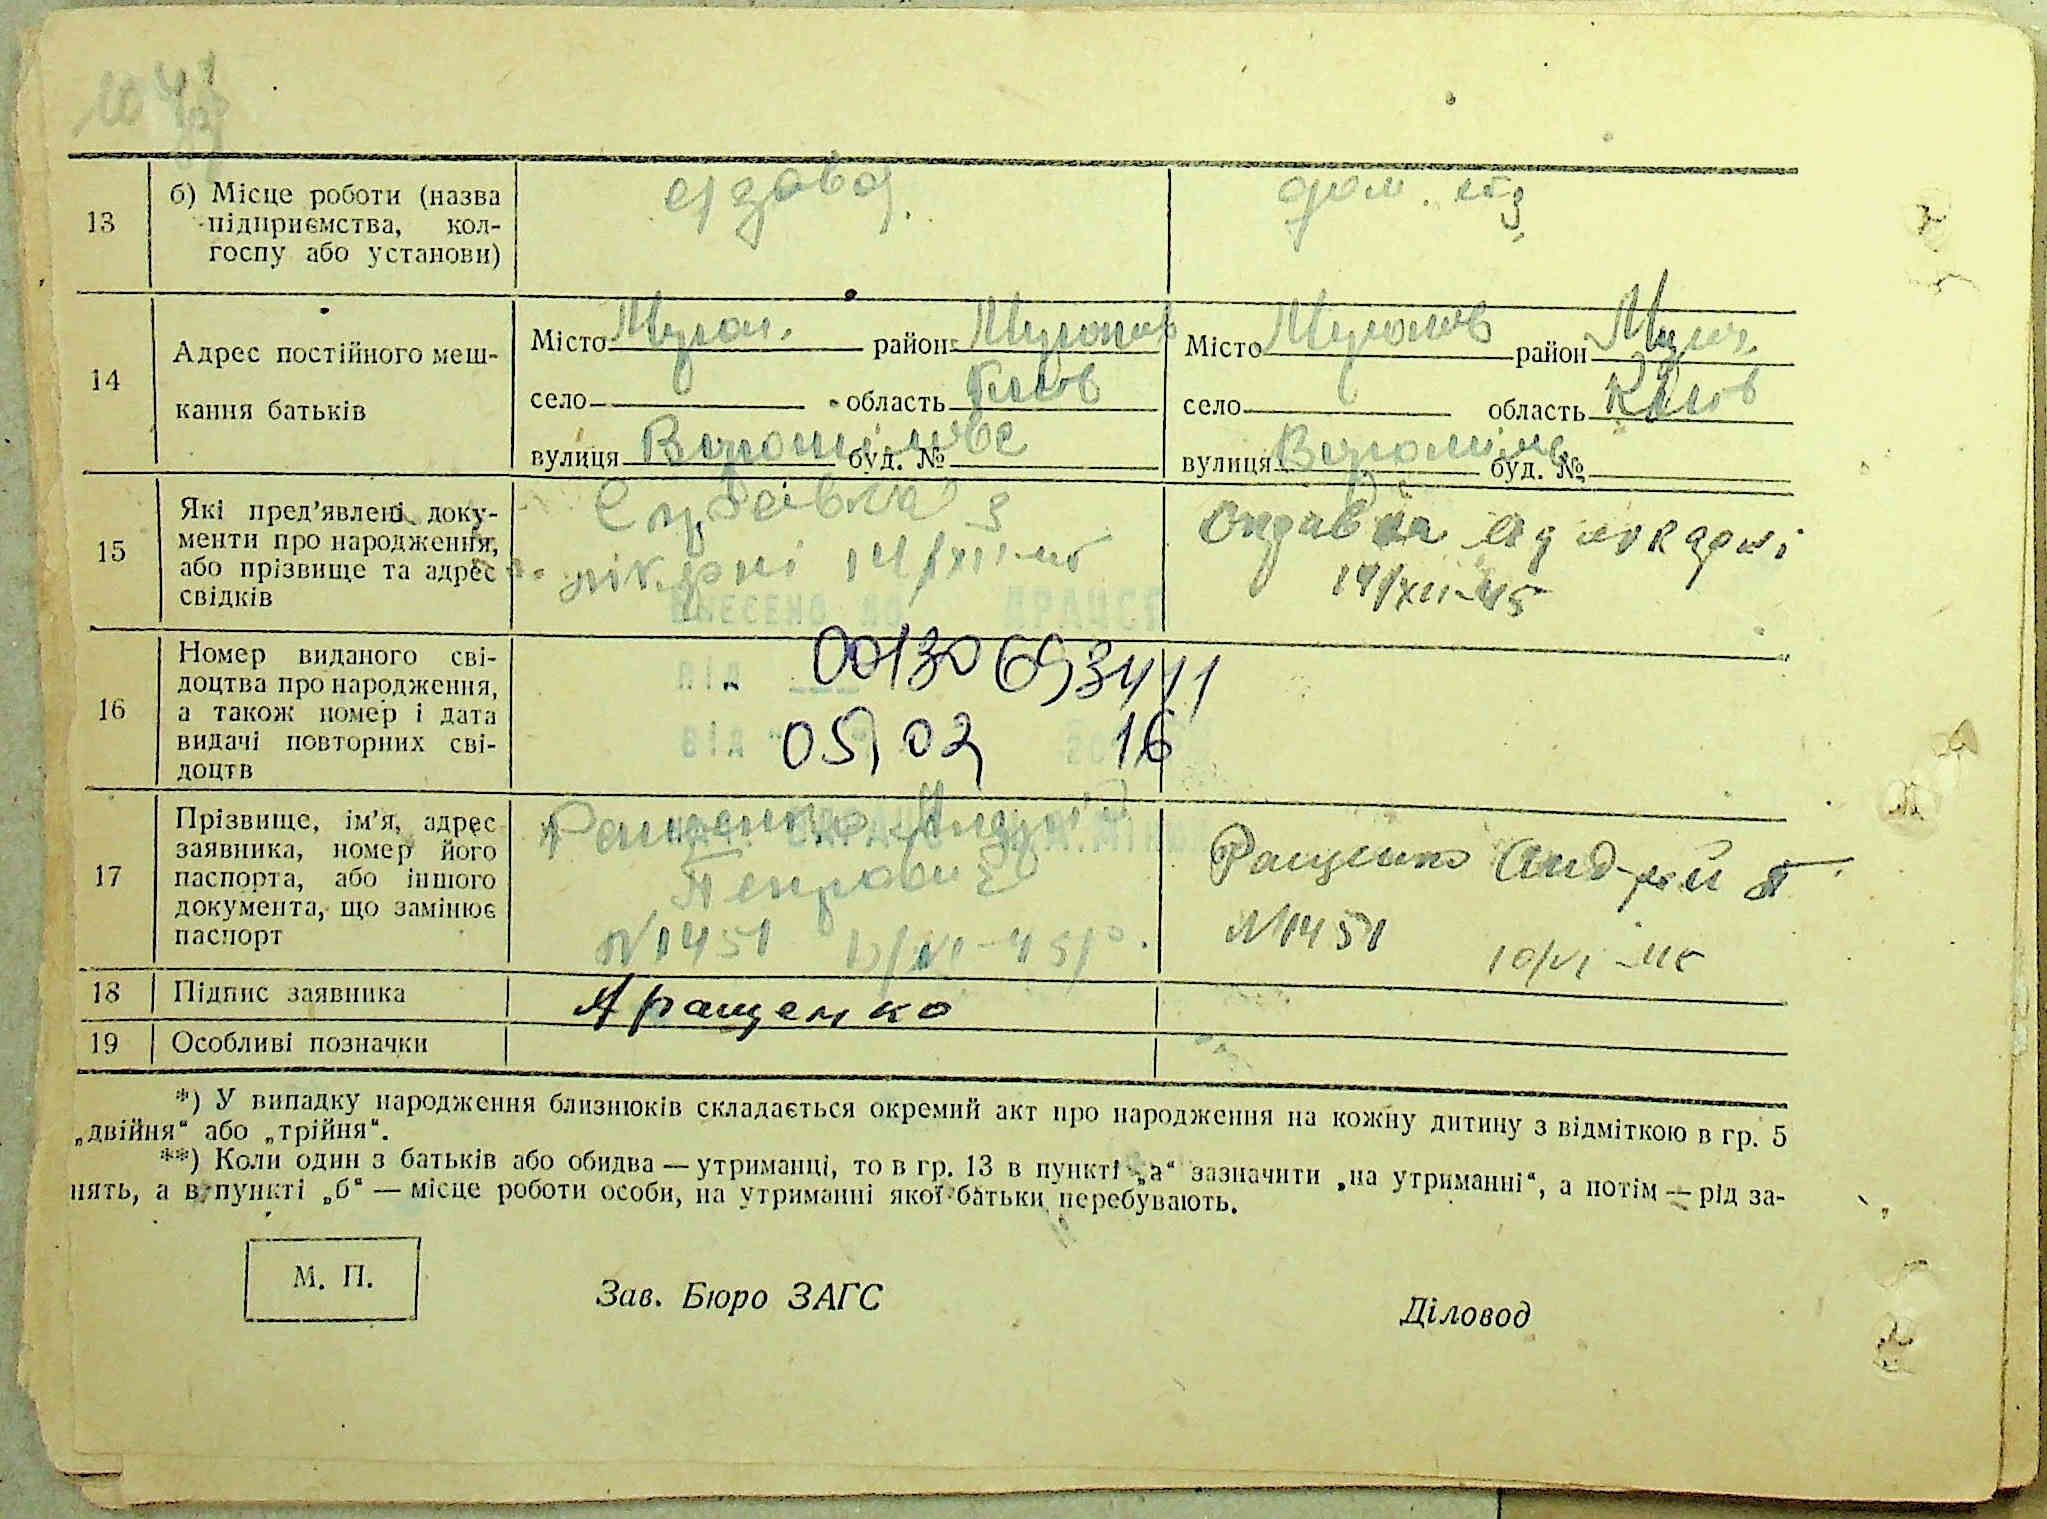 13
б) Місце роботи (назва
підприємства, кол-
госпу або установи)
с/завод.
дом. хаз
14
Адрес постійного меш-
кання батьків
Місто Мирон. район Миронів
село область Київ
вулиця Ворошилова буд. №
Місто Миронів район Мирон
село область Київ
вулиця буд. №
15
Які пред’явлені доку-
менти про народження,
або прізвище та адрес
свідків
Справка з
лікарні 14/XII-45
Справка з лікарні
14/XII-45
ВНЕСЕНО ДО ДРАЦСГ
16
Номер виданого сві-
доцтва про народження,
а також номер і дата
видачі повторних сві-
доцтв
ПІД 00130693411
ВІД 05 02 16
17
Прізвище, ім’я, адрес
заявника, номер його
паспорта, або іншого
документа, що замінює
паспорт
Ращенко Андрій
Петрович
№1451
Ращенко Андрей П.
№1451 10/VI-45
18
Підпис заявника
А Ращенко
19
Особливі позначки
*) У випадку народження близнюків складається окремий акт про народження на кожну дитину з відміткою в гр. 5
„двійня“ або „трійня“.
**) Коли один з батьків або обидва — утриманці, то в гр. 13 в пункті „а“ зазначити „на утриманні“, а потім — рід за-
нять, а в пункті „б“ — місце роботи особи, на утриманні якої батьки перебувають.
М. П.
Зав. Бюро ЗАГС
Діловод